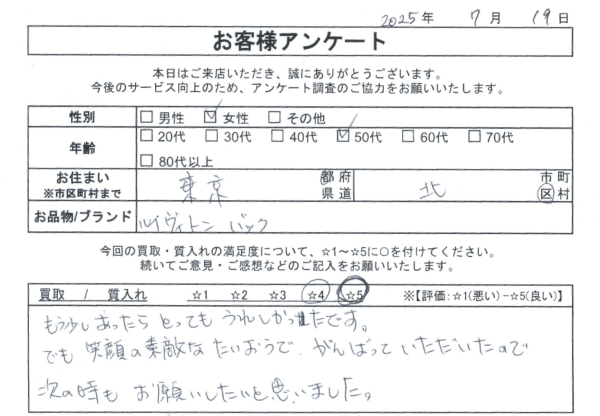 2025年 7月 19日
お客様アンケート
本日はご来店いただき、誠にありがとうございます。
今後のサービス向上のため、アンケート調査のご協力をお願いいたします。
性別 □ 男性 ☑ 女性 □ その他
年齢 □ 20代 □ 30代 □ 40代 ☑ 50代 □ 60代 □ 70代
□ 80代以上
お住まい ※市区町村まで 東京 都府県道 北 市町区村
お品物/ブランド ルイヴィトン バック
今回の買取・質入れの満足度について、☆1～☆5に○を付けてください。
続いてご意見・ご感想などのご記入をお願いいたします。
買取 / 質入れ ☆1 ☆2 ☆3 ☆4 ☆5 ※【評価:☆1(悪い)−☆5(良い)】
もう少しあったらとってもうれしかったです。
でも笑顔の素敵なたいおうで、がんばっていただいたので
次の時もお願いしたいと思いました。